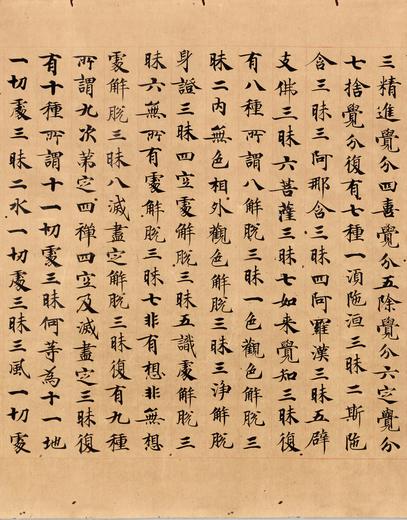 三精進覺分四喜覺分五除覺分六定覺分
七捨覺分復有七種一須陁洹三昧二斯陁
含三昧三阿那含三昧四阿羅漢三昧五辟
支佛三昧六菩薩三昧七如来覺知三昧復
有八種所謂八解脫三昧一色觀色解脫三
昧二內無色相外觀色解脫三昧三淨解脫
身證三昧四空處解脫三昧五識處解脫三
昧六無所有處解脫三昧七非有想非無想
處解脫三昧八滅盡定解脫三昧復有九種
所謂九次第定四禪四空及滅盡定三昧復
有十種所謂十一切處三昧何等為十一地
一切處三昧二水一切處三昧三風一切處